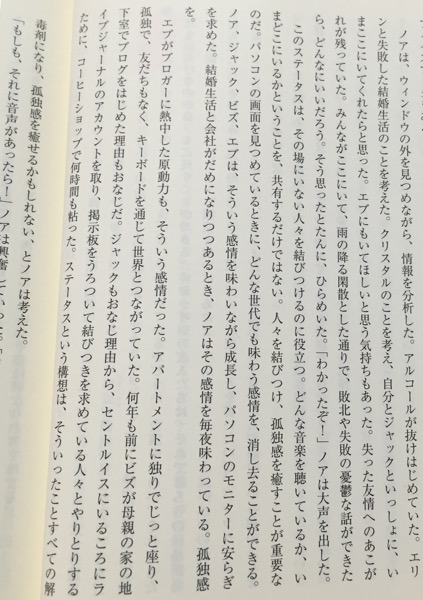 ノアは、ウィンドウの外を見つめながら、情報を分析した。アルコールが抜けはじめていた。エリ
ンと失敗した結婚生活のことを考えた。クリスタルのことを考え、自分とジャックといっしょに、い
まここにいてくれたらと思った。エブにもいてほしいと思う気持ちもあった。失った友情へのあこが
れが残っていた。みんながここにいて、雨の降る閑散とした通りで、敗北や失敗の憂鬱な話ができた
ら、どんなにいいだろう。そう思ったとたんに、ひらめいた。「わかったぞ！」ノアは大声を出した。
このステータスは、その場にいない人々を結びつけるのに役立つ。どんな音楽を聴いているか、い
まどこにいるかということを、共有するだけではない。人々を結びつけ、孤独感を癒すことが重要な
のだ。パソコンの画面を見つめているときに、どんな世代でも味わう感情を、消し去ることができる。
ノア、ジャック、ビズ、エブは、そういう感情を味わいながら成長し、パソコンのモニターに安らぎ
を求めた。結婚生活と会社がだめになりつつあるとき、ノアはその感情を毎夜味わっている。孤独感
を。
エブがブロガーに熱中した原動力も、そういう感情だった。アパートメントに独りでじっと座り、
孤独で、友だちもなく、キーボードを通じて世界とつながっていた。何年も前にビズが母親の家の地
下室でブログをはじめた理由もおなじだ。ジャックもおなじ理由から、セントルイスにいるころにラ
イブジャーナルのアカウントを取り、掲示板をうろついて結びつきを求めている人々とやりとりする
ために、コーヒーショップで何時間も粘った。ステータスという構想は、そういったことすべての解
毒剤になり、孤独感を癒せるかもしれない、とノアは考えた。
「もしも、それに音声があったら！」ノアは興奮